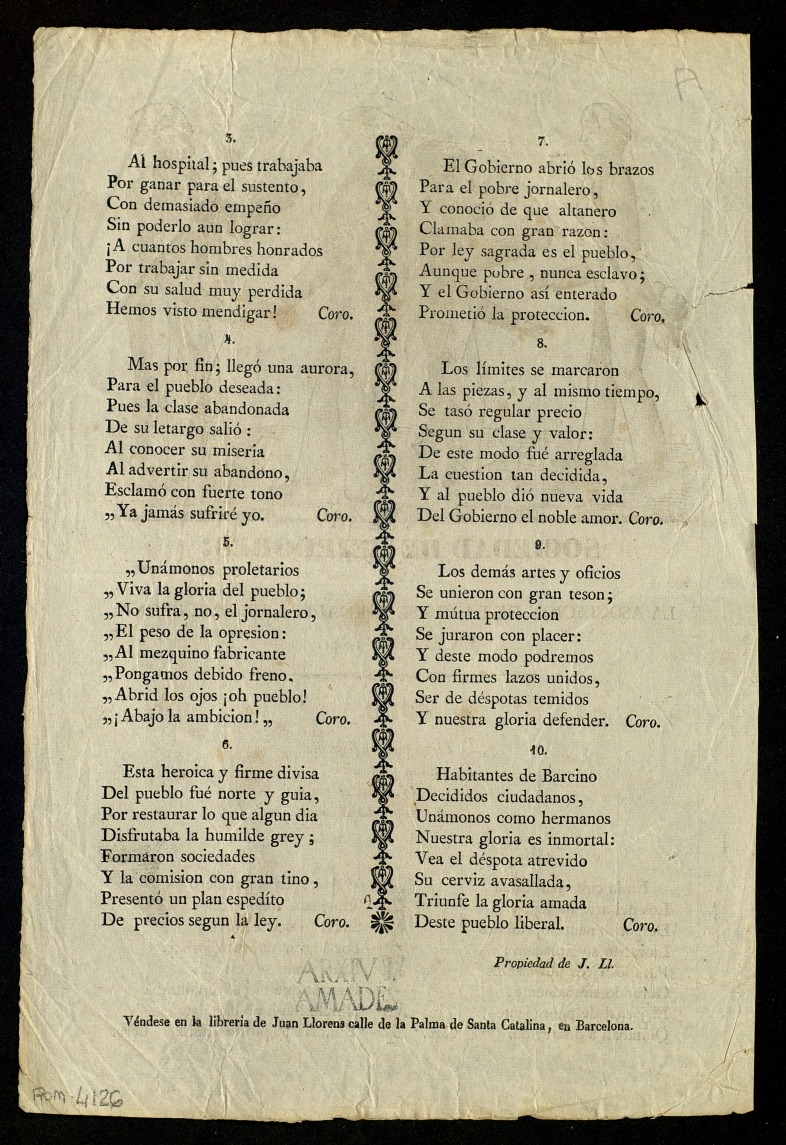 3.
Al hospital; pues trabajaba
Por ganar para el sustento,
Con demasiado empeño
Sin poderlo aun lograr:
¡A cuantos hombres honrados
Por trabajar sin medida
Con su salud muy perdida
Hemos visto mendigar! Coro.
4.
Mas por fin; llegó una aurora,
Para el pueblo deseada:
Pues la clase abandonada
De su letargo salió:
Al conocer su misería
Al advertir su abandono,
Esclamó con fuerte tono
„Ya jamás sufriré yo. Coro.
5.
„Unámonos proletarios
„Viva la gloria del pueblo;
„No sufra, no, el jornalero,
„El peso de la opresion:
„Al mezquino fabricante
„Pongamos debido freno.
„Abrid los ojos ¡oh pueblo!
„¡Abajo la ambicion!„ Coro.
6.
Esta heroica y firme divisa
Del pueblo fué norte y guia,
Por restaurar lo que algun dia
Disfrutaba la humilde grey;
Formaron sociedades
Y la comision con gran tino,
Presentó un plan espedíto
De precios segun la ley. Coro.
7.
El Gobierno abrió los brazos
Para el pobre jornalero,
Y conoció de que altanero
Clamaba con gran razon:
Por ley sagrada es el pueblo,
Aunque pobre, nunca esclavo;
Y el Gobierno así enterado
Prometió la proteccion. Coro.
8.
Los límites se marcaron
A las piezas, y al mismo tiempo,
Se tasó regular precio
Segun su clase y valor:
De este modo fué arreglada
La cuestion tan decidida,
Y al pueblo dió nueva vida
Del Gobierno el noble amor. Coro.
9.
Los demás artes y oficios
Se unieron con gran teson;
Y mútua proteccion
Se juraron con placer:
Y deste modo podremos
Con firmes lazos unidos,
Ser de déspotas temidos
Y nuestra gloria defender. Coro.
10.
Habitantes de Barcino
Decididos ciudadanos,
Unámonos como hermanos
Nuestra gloria es inmortal:
Vea el déspota atrevido
Su cerviz avasallada,
Triunfe la gloria amada
Deste pueblo liberal. Coro.
Propiedad de J. Ll.
ARXIV
AMADE
Véndese en la librería de Juan Llorens calle de la Palma de Santa Catalina, en Barcelona.
ROM-4126